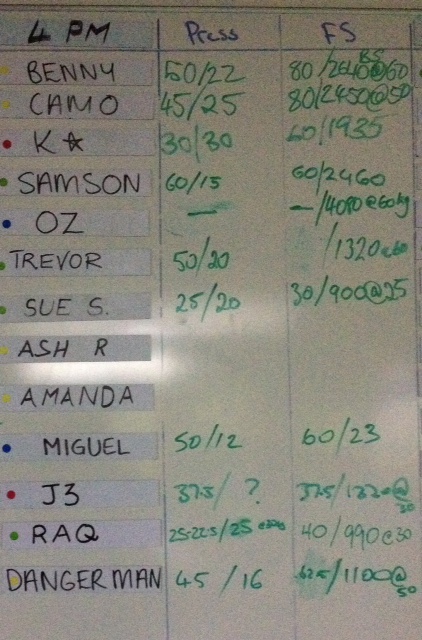 4 PM Press FS
BENNY 50/22 80/2640@60
CAMO 45/25 80/2450@50
K☆ 30/30 60/1935
SAMSON 60/15 60/2460
OZ — —/4080@60kg
TREVOR 50/20 /1320
SUE S. 25/20 30/900@25
ASH R
AMANDA
MIGUEL 50/12 60/23
J3 37.5/ ? 37.5/1320@30
RAQ 25-22.5/25 40/990@30
DANGERMAN 45/16 62.5/1100@50